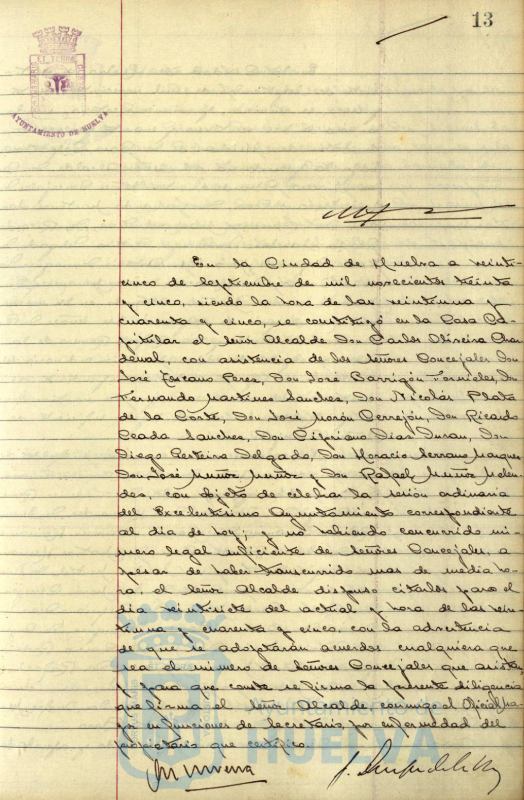 13
AYUNTAMIENTO DE HUELVA
En la Ciudad de Huelva a veinti-
cinco de Septiembre de mil novecientos treinta
y cinco, siendo la hora de las veintiuna y
cuarenta y cinco, se constituyó en la Casa Ca-
pitular el señor Alcalde Don Carlos Oliveira
con asistencia de los señores Concejales Don
José Toscano Perez, Don José Barrigón Tornieles, Don
Fernando Martinez Sanchez, Don Nicolás Plata
de la Corte, Don José Morón Cerrejón, Don Ricardo
Ceada Sanchez, Don Cipriano Diaz Duran, Don
Diego Delgado, Don Horacio Serrano Marquez
Don José Muñoz Muñoz y Don Rafael Muñoz Melen-
dez, con objeto de celebrar la sesión ordinaria
del Excelentísimo Ayuntamiento correspondiente
al dia de hoy; y no habiendo concurrido nú-
mero legal suficiente de señores Concejales, a
pesar de haber transcurrido mas de media ho-
ra, el señor Alcalde dispuso citarlos para el
dia veintisiete del actual y hora de las vein-
tiuna y cuarenta y cinco, con la advertencia
de que se adoptarán acuerdos cualquiera que
sea el número de señores Concejales que asistan,
y para que conste se firma la presente diligencia
que firma el señor Alcalde conmigo el Oficial Ma-
yor en funciones de Secretario, por enfermedad del
propietario que certifico.
HUELVA